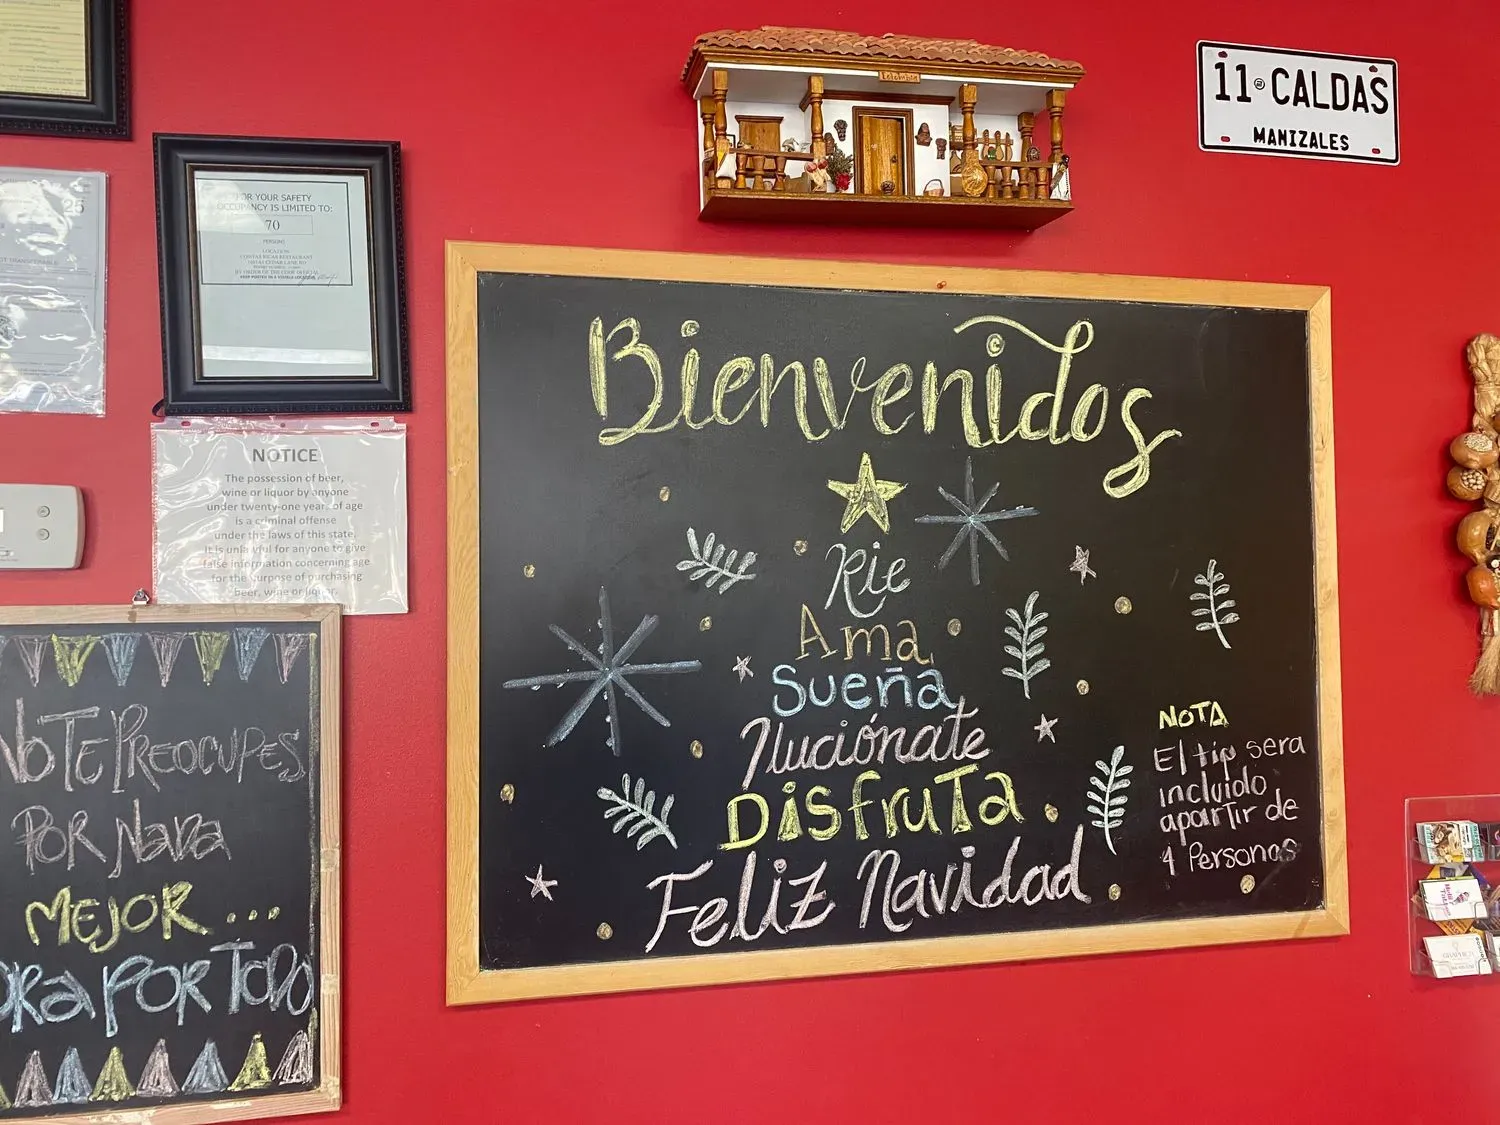 25
FOR YOUR SAFETY
OCCUPANCY IS LIMITED TO:
70
PERSONS
LOCATION
BY ORDER OF THE CODE OFFICIAL
KEEP POSTED IN A VISIBLE LOCATION
NOTICE
The possession of beer,
wine or liquor by anyone
under twenty-one years of age
is a criminal offense
under the laws of this state.
It is unlawful for anyone to give
false information concerning age
for the purpose of purchasing
beer, wine or liquor.
NO TE PREOCUPES
POR NADA
MEJOR...
ORA POR TODO
Colombia
11 CALDAS
MANIZALES
Bienvenidos
Rie
Ama
Sueña
Iluciónate
Disfruta
Feliz Navidad
NOTA
El tip sera
incluido
apartir de
4 Personas